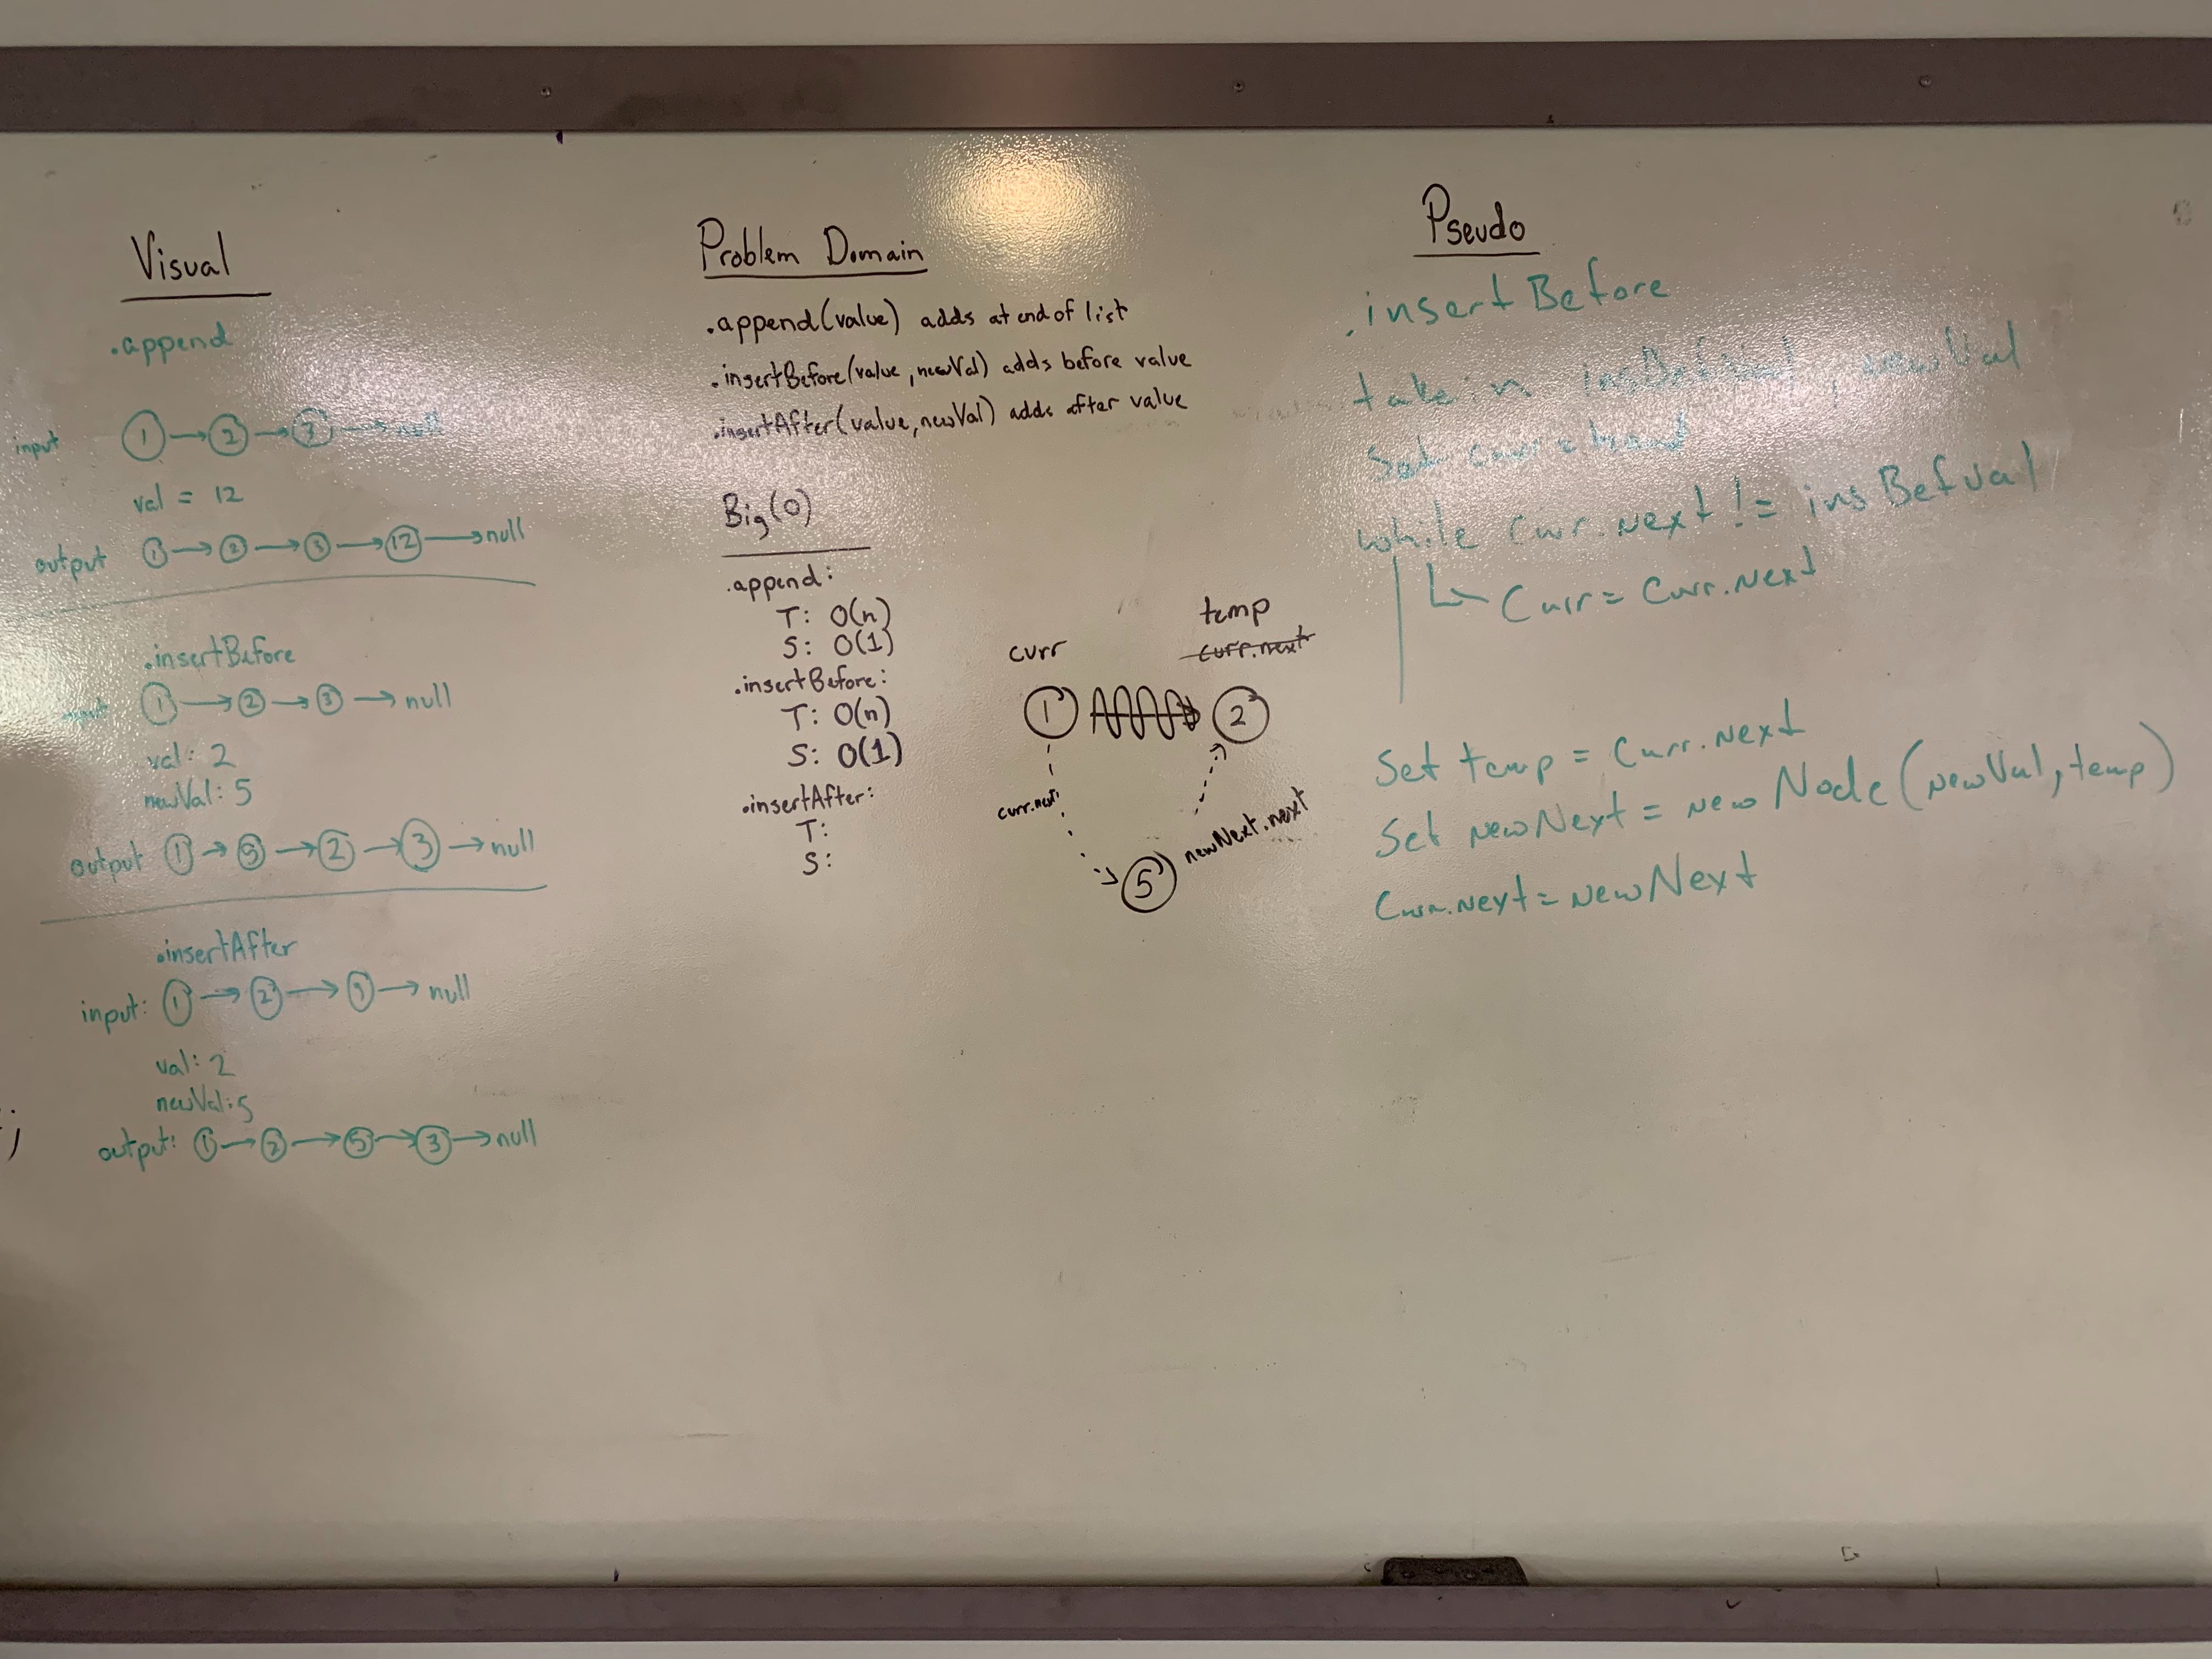 Visual
.append
input 1 → 2 → 3 → null
val = 12
output 1 → 2 → 3 → 12 → null
.insertBefore
input 1 → 2 → 3 → null
val: 2
newVal: 5
output 1 → 5 → 2 → 3 → null
.insertAfter
input: 1 → 2 → 3 → null
val: 2
newVal: 5
output: 1 → 2 → 5 → 3 → null
Problem Domain
.append(value) adds at end of list
.insertBefore(value, newVal) adds before value
.insertAfter(value, newVal) adds after value
Big(O)
.append:
T: O(n)
S: O(1)
.insertBefore:
T: O(n)
S: O(1)
.insertAfter:
T:
S:
temp
curr curr.next
1 2
curr.next newNext.next
5
Pseudo
.insertBefore
take in insBefVal, newVal
Set curr = head
while curr.next != insBefVal
Curr = Curr.Next
Set temp = Curr.Next
Set newNext = new Node(newVal, temp)
Curr.Next = NewNext
;